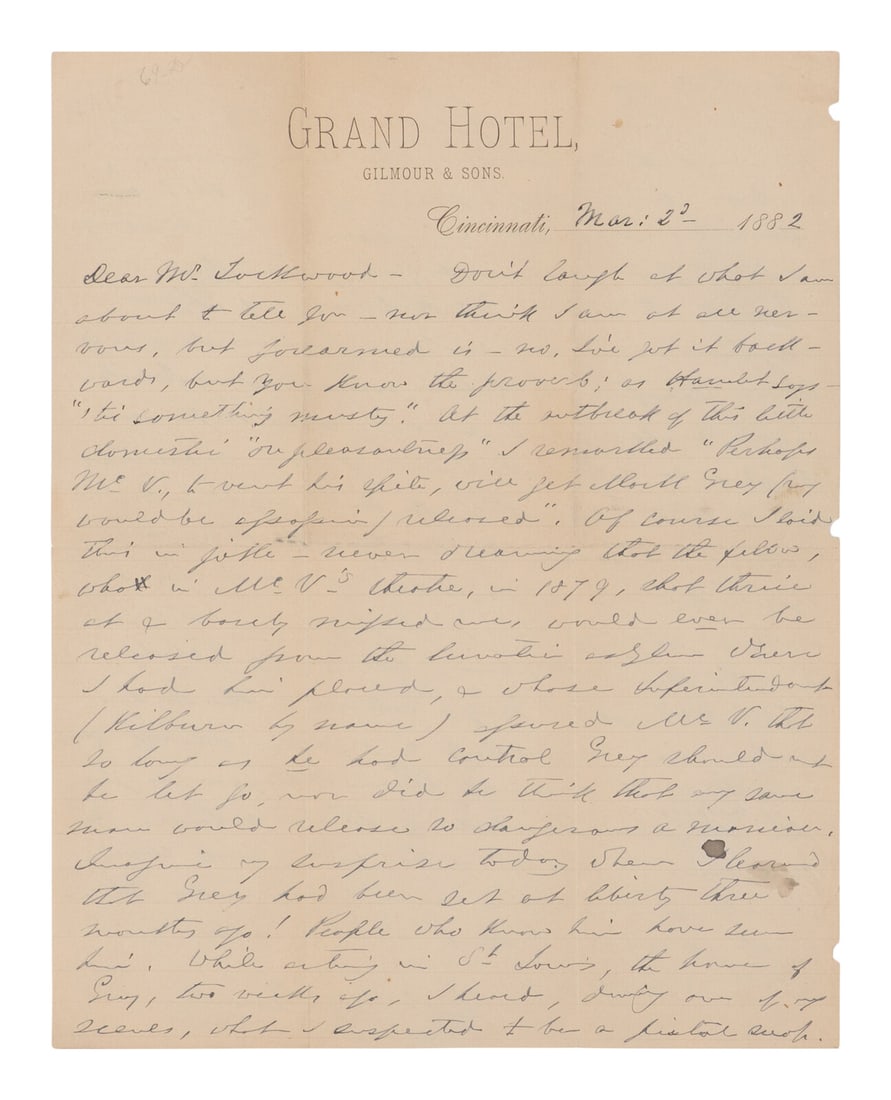 69-20
GRAND HOTEL,
GILMOUR & SONS.
Cincinnati, Mar: 2d 1882
Dear Mr. Lockwood – Don't laugh at what I am
about to tell you – nor think I am at all ner-
vous, but forearmed is – no, I've got it back-
wards, but you know the proverb; as Hamlet says –
"'tis something musty." At the outbreak of this little
domestic "onpleasantness" I remarked "Perhaps
Mc V., to vent his spite, will get Mark Grey (my
would be assassin) released". Of course I said
this in joke – never dreaming that the fellow,
who in Mc V–'s theatre, in 1879, shot thrice
at & barely missed me, would ever be
released from the lunatic asylum where
I had him placed, & whose Superintendent
(Kilburn by name) assured Mc V. that
so long as he had control Grey should not
be let go, nor did he think that any sane
man would release so dangerous a maniac.
Imagine my surprise today when I learned
that Grey had been set at liberty three
months ago! People who know him have seen
him. While acting in St Louis, the home of
Grey, two weeks ago, I heard, during one of my
scenes, what I suspected to be a pistol snap.